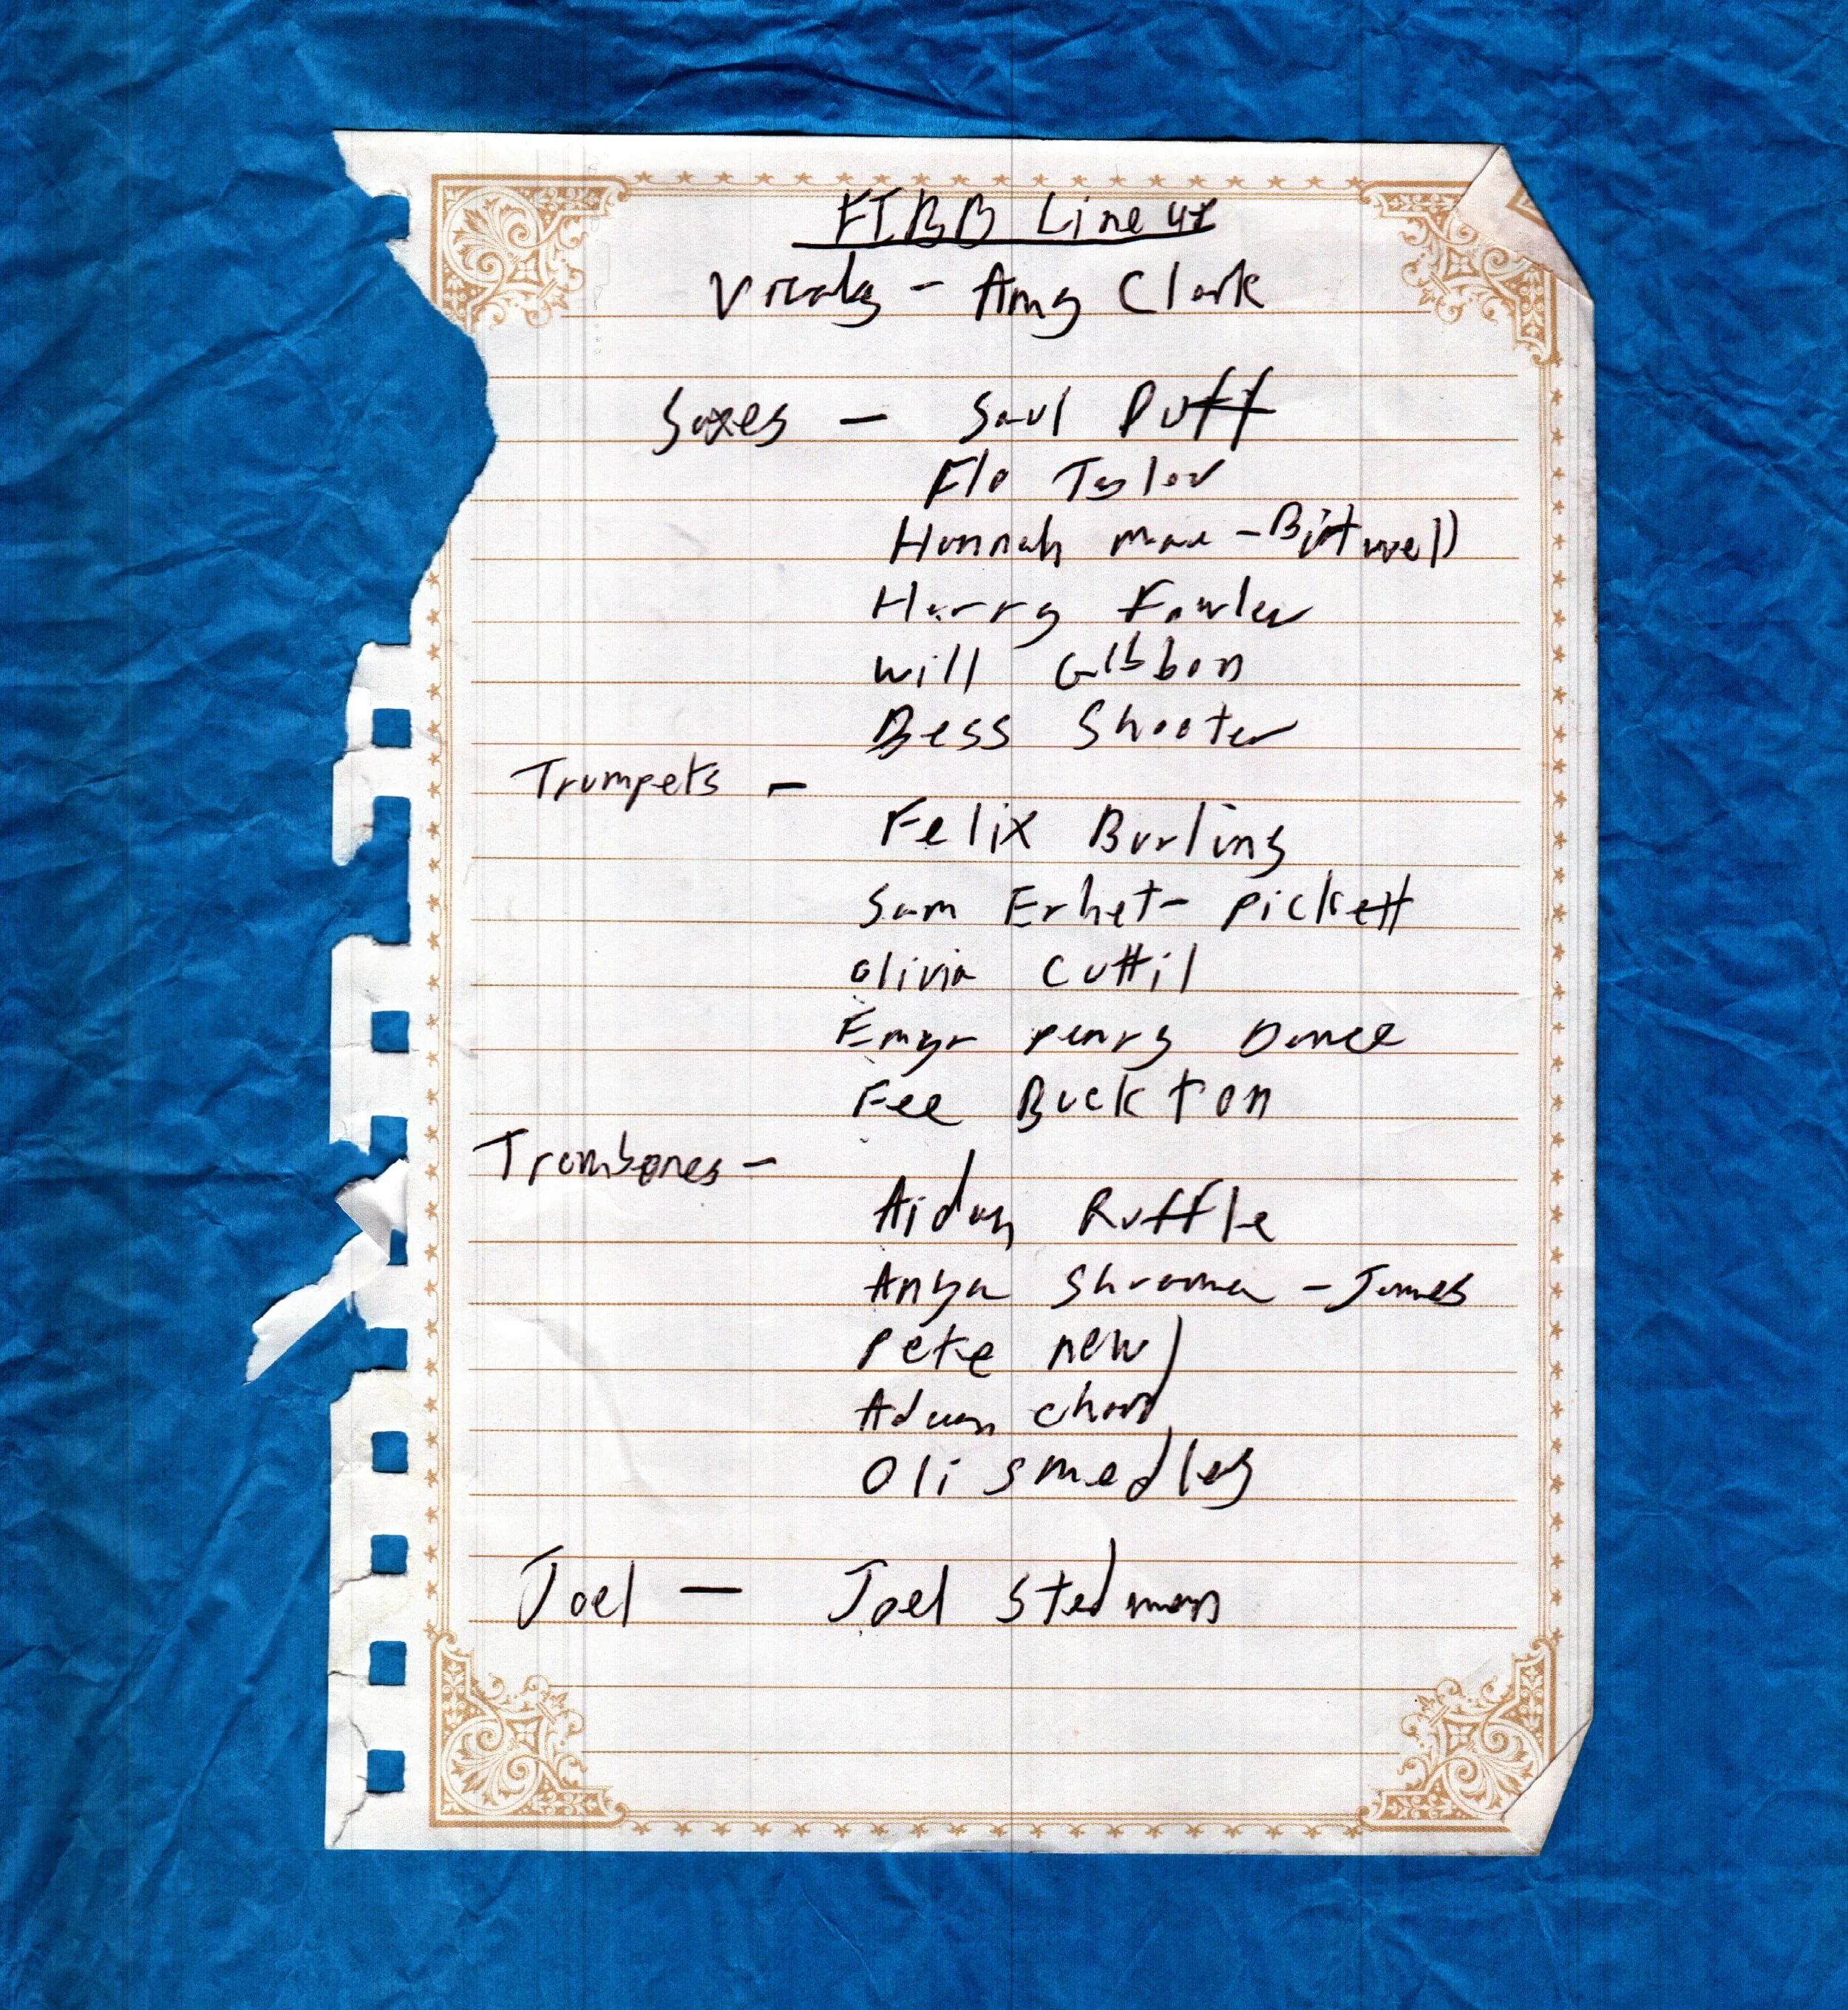 FTBB Line up
Vocals - Amy Clark
Saxes - Saul Duff
Flo Taylor
Hannah Mae-Birtwell
Harry Fowler
Will Gibbon
Bess Shooter
Trumpets -
Felix Burling
Sam Erhet-Pickett
Olivia Cuttil
Emyr Penry Dance
Fee Buckton
Trombones -
Aidan Ruffle
Anya -James
Pete new
Adam chard
Oli Smedley
Joel - Joel Stedman